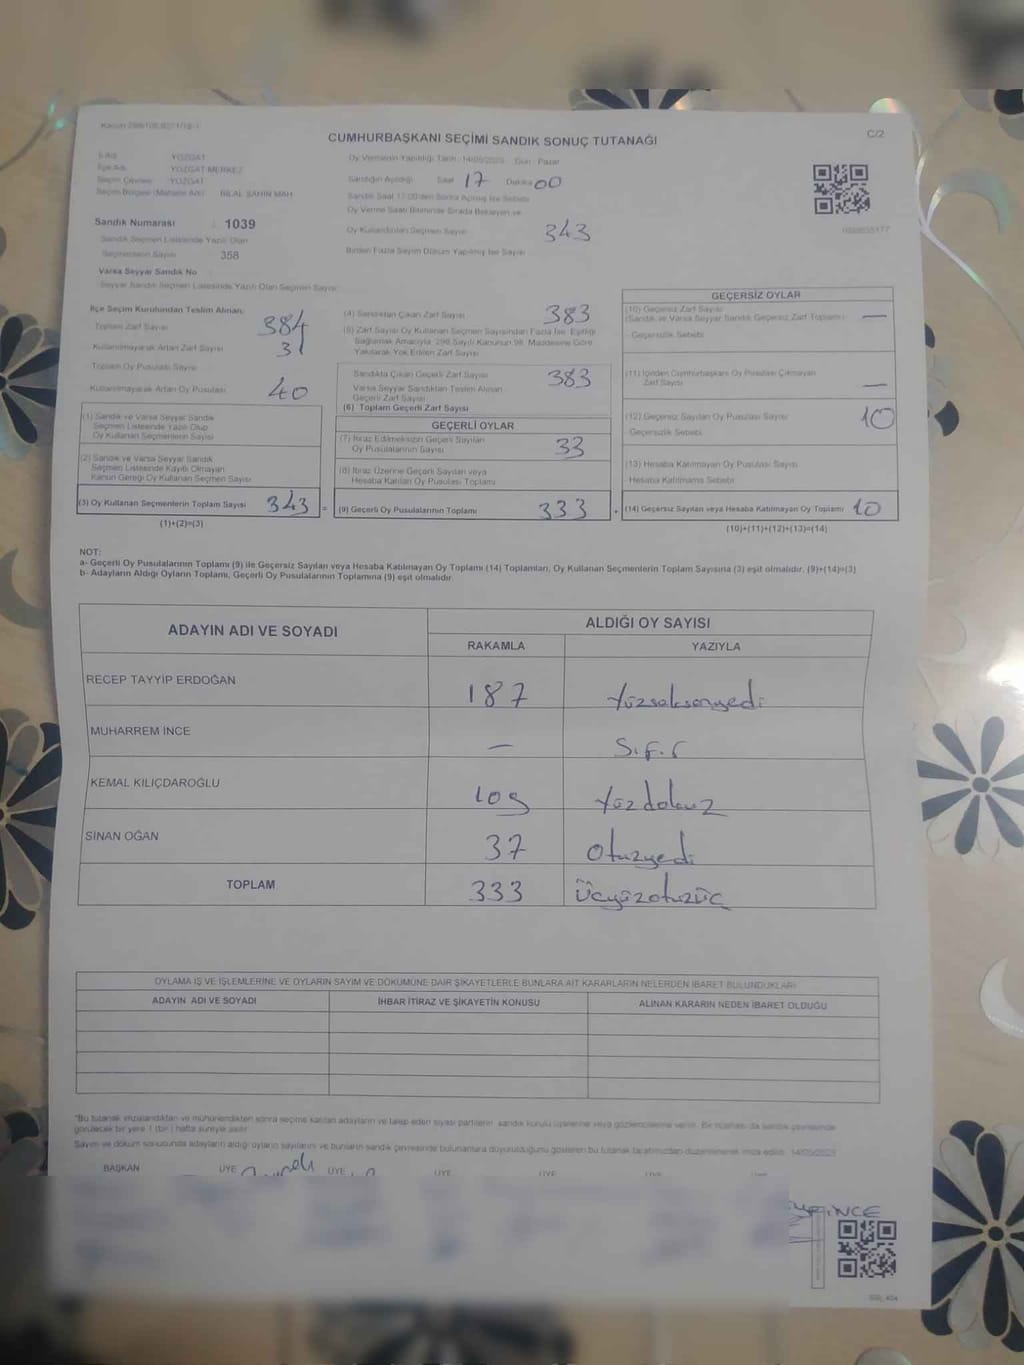 CUMHURBAŞKANI SEÇİMİ SANDIK SONUÇ TUTANAĞI
C/2
İl Adı YOZGAT
İlçe Adı YOZGAT MERKEZ
Seçim Çevresi YOZGAT
Seçim Bölgesi (Mahalle Adı) BİLAL ŞAHİN MAH
Sandık Numarası : 1039
Sandık Seçmen Listesinde Yazılı Olan
Seçmenlerin Sayısı 358
Varsa Seyyar Sandık No
Seyyar Sandık Seçmen Listesinde Yazılı Olan Seçmen Sayısı
Oy Vermenin Yapıldığı Tarih : 14/05/2023 Gün : Pazar
Sandığın Açıldığı Saat 17 Dakika 00
Sandık Saat 17:00'den Sonra Açılmış İse Sebebi
Oy Verme Saati Bitiminde Sırada Bekleyen ve
Oy Kullandırılan Seçmen Sayısı 343
Birden Fazla Sayım Döküm Yapılmış İse Sayısı
İlçe Seçim Kurulundan Teslim Alınan;
Toplam Zarf Sayısı 384
Kullanılmayarak Artan Zarf Sayısı 31
Toplam Oy Pusulası Sayısı
Kullanılmayarak Artan Oy Pusulası 40
(1) Sandık ve Varsa Seyyar Sandık
Seçmen Listesinde Yazılı Olup
Oy Kullanan Seçmenlerin Sayısı
(2) Sandık ve Varsa Seyyar Sandık
Seçmen Listesinde Kayıtlı Olmayan
Kanun Gereği Oy Kullanan Seçmen Sayısı
(3) Oy Kullanan Seçmenlerin Toplam Sayısı 343 =
(1)+(2)=(3)
(4) Sandıktan Çıkan Zarf Sayısı 383
(5) Zarf Sayısı Oy Kullanan Seçmen Sayısından Fazla İse, Eşitliği
Sağlamak Amacıyla, 298 Sayılı Kanunun 98. Maddesine Göre
Yakılarak Yok Edilen Zarf Sayısı
Sandıkta Çıkan Geçerli Zarf Sayısı 383
Varsa Seyyar Sandıktan Teslim Alınan
Geçerli Zarf Sayısı
(6) Toplam Geçerli Zarf Sayısı
GEÇERLİ OYLAR
(7) İtiraz Edilmeksizin Geçerli Sayılan
Oy Pusulalarının Sayısı 33
(8) İtiraz Üzerine Geçerli Sayılan veya
Hesaba Katılan Oy Pusulası Toplamı
(9) Geçerli Oy Pusulalarının Toplamı 333 +
GEÇERSİZ OYLAR
(10) Geçersiz Zarf Sayısı
(Sandık ve Varsa Seyyar Sandık Geçersiz Zarf Toplamı) —
Geçersizlik Sebebi
(11) İçinden Cumhurbaşkanı Oy Pusulası Çıkmayan
Zarf Sayısı —
(12) Geçersiz Sayılan Oy Pusulası Sayısı 10
Geçersizlik Sebebi
(13) Hesaba Katılmayan Oy Pusulası Sayısı
Hesaba Katılmama Sebebi
(14) Geçersiz Sayılan veya Hesaba Katılmayan Oy Toplamı 10
(10)+(11)+(12)+(13)=(14)
NOT:
a- Geçerli Oy Pusulalarının Toplamı (9) ile Geçersiz Sayılan veya Hesaba Katılmayan Oy Toplamı (14) Toplamları, Oy Kullanan Seçmenlerin Toplam Sayısına (3) eşit olmalıdır. (9)+(14)=(3)
b- Adayların Aldığı Oyların Toplamı, Geçerli Oy Pusulalarının Toplamına (9) eşit olmalıdır.
ADAYIN ADI VE SOYADI
ALDIĞI OY SAYISI
RAKAMLA YAZIYLA
RECEP TAYYİP ERDOĞAN 187 Yüzseksenyedi
MUHARREM İNCE — Sıfır
KEMAL KILIÇDAROĞLU 109 Yüzdokuz
SİNAN OĞAN 37 Otuzyedi
TOPLAM 333 Üçyüzotuzüç
OYLAMA İŞ VE İŞLEMLERİNE VE OYLARIN SAYIM VE DÖKÜMÜNE DAİR ŞİKAYETLERLE BUNLARA AİT KARARLARIN NELERDEN İBARET BULUNDUKLARI
ADAYIN ADI VE SOYADI İHBAR İTİRAZ VE ŞİKAYETİN KONUSU ALINAN KARARIN NEDEN İBARET OLDUĞU
*Bu tutanak imzalandıktan ve mühürlendikten sonra seçime katılan adayların ve talep eden siyasi partilerin sandık kurulu üyelerine veya gözlemcilerine verilir. Bir nüshası da sandık çevresinde
görülecek bir yere 1 (bir) hafta süreyle asılır.
Sayım ve döküm sonucunda adayların aldığı oyların sayılarını ve bunların sandık çevresinde bulunanlara duyurulduğunu gösteren bu tutanak tarafımızdan düzenlenerek imza edildi. 14/05/2023
BAŞKAN ÜYE ÜYE ÜYE ÜYE ÜYE ÜYE
İNCE